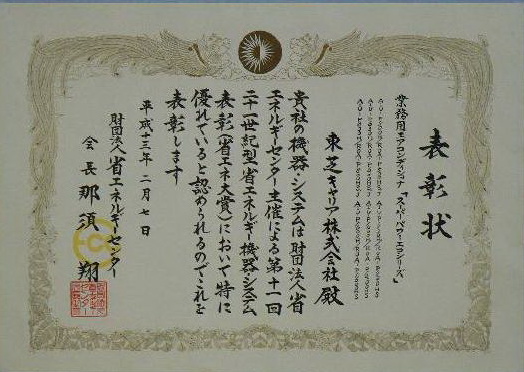 表彰状
業務用エアコンディショナ「スーパーパワーエコシリーズ」
東芝キャリア株式会社 殿
貴社の機器・システムは財団法人省
エネルギーセンター主催による第十一回
二十一世紀型省エネルギー機器・システム
表彰(省エネ大賞)において特に
優れていると認められるのでこれを
表彰します
平成十三年二月七日
財団法人省エネルギーセンター
会長 那須 翔